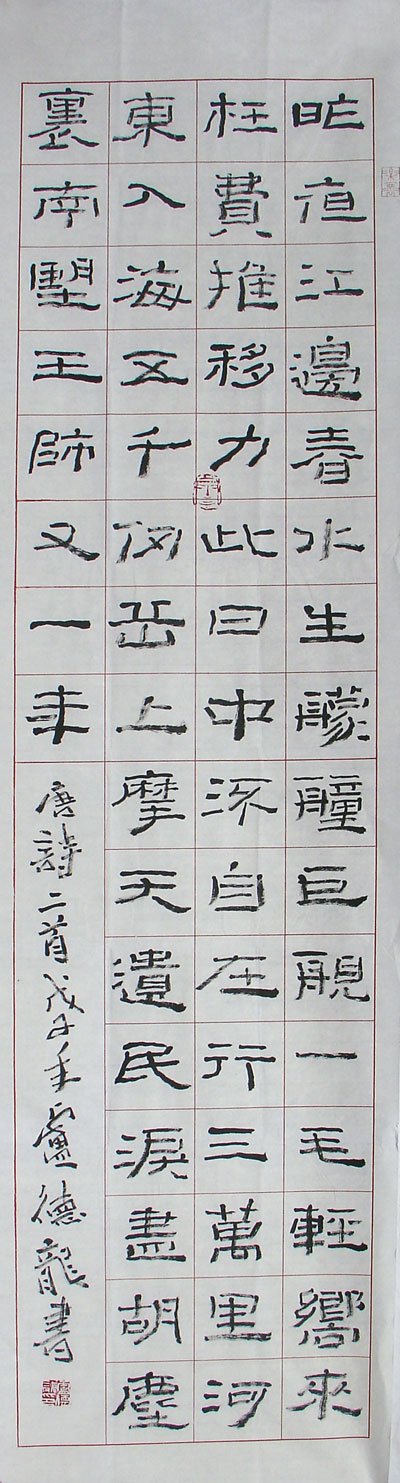 昨夜江邊春水生艨艟巨舰一毛輕嚮來
枉費推移力此日中流自在行三萬里河
東入海五千仞岳上摩天遺民淚盡胡塵
裏南望王師又一年
唐詩二首戊子年盧德龍書